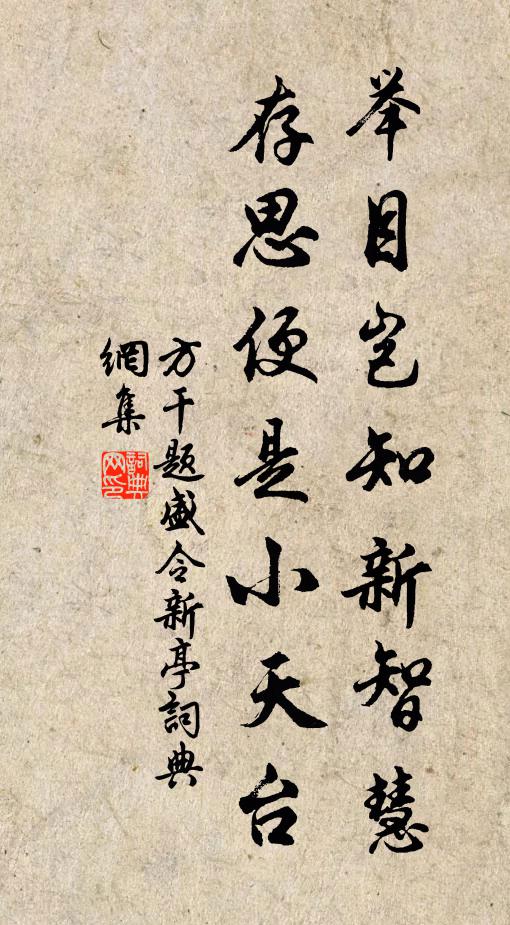 举目岂知新智慧
存思便是小天台
方干题盛令新亭词典
網集
詞典网印